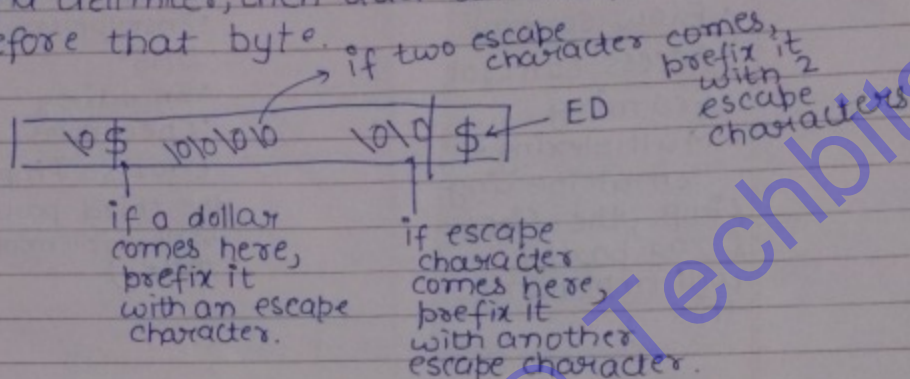 efore that byte.
if two escape
character comes,
prefix it
with 2
escape
characters
\0$ \0\0\0\0 \0\0 $ ED
if a dollar
comes here,
prefix it
with an escape
character.
if escape
character
comes here,
prefix it
with another
escape character.
Techbit